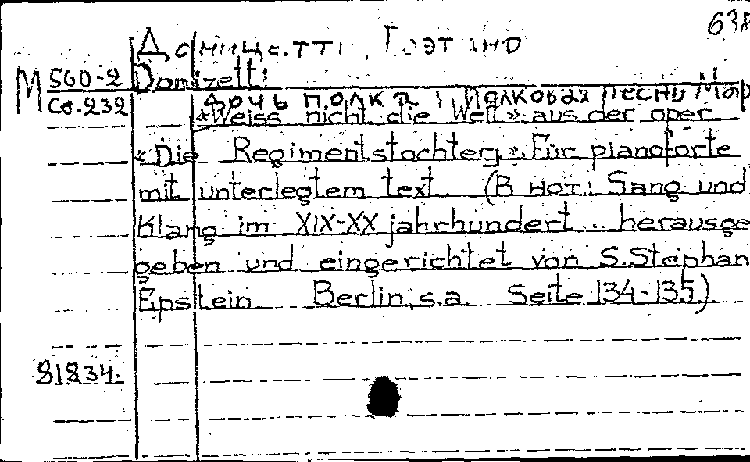 638
Доницетти, Гаэтано
М 560-2 Donizetti
Сб.232 Дочь полка. Полковая песнь Мар
«Weiss nicht die Welt» aus der oper
«Die Regimentstochter». Für pianoforte
mit unterlegtem text. (В нот.: Sang und
Klang im XIX-XX jahrhundert.. herausge
geben und eingerichtet von S. Stephan
Epstein. Berlin, s.a. Seite 134-135)
81834.